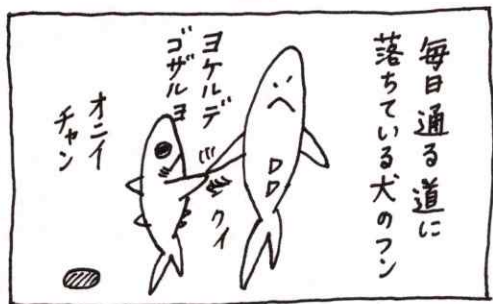 毎日通る道に
落ちている犬のフン
ヨケルデ
ゴザルヨ
クイ
オニイ
チャン